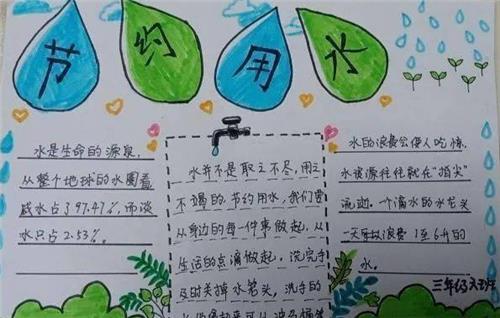 节约用水
水是生命的源泉,
从整个地球的水圈看
咸水占了97.47%,而淡
水只占2.53%。
水并不是取之不尽,用之
不竭的节约用水,我们要
从身边的每一件事做起,从
生活的点滴做起,洗完手
及时关掉水笼头,洗手的
水的浪费会使人吃惊,
水资源往往就在“指尖”
流逝,一个滴水的水龙头
一天可以浪费1至6升的
水。
三年级六班